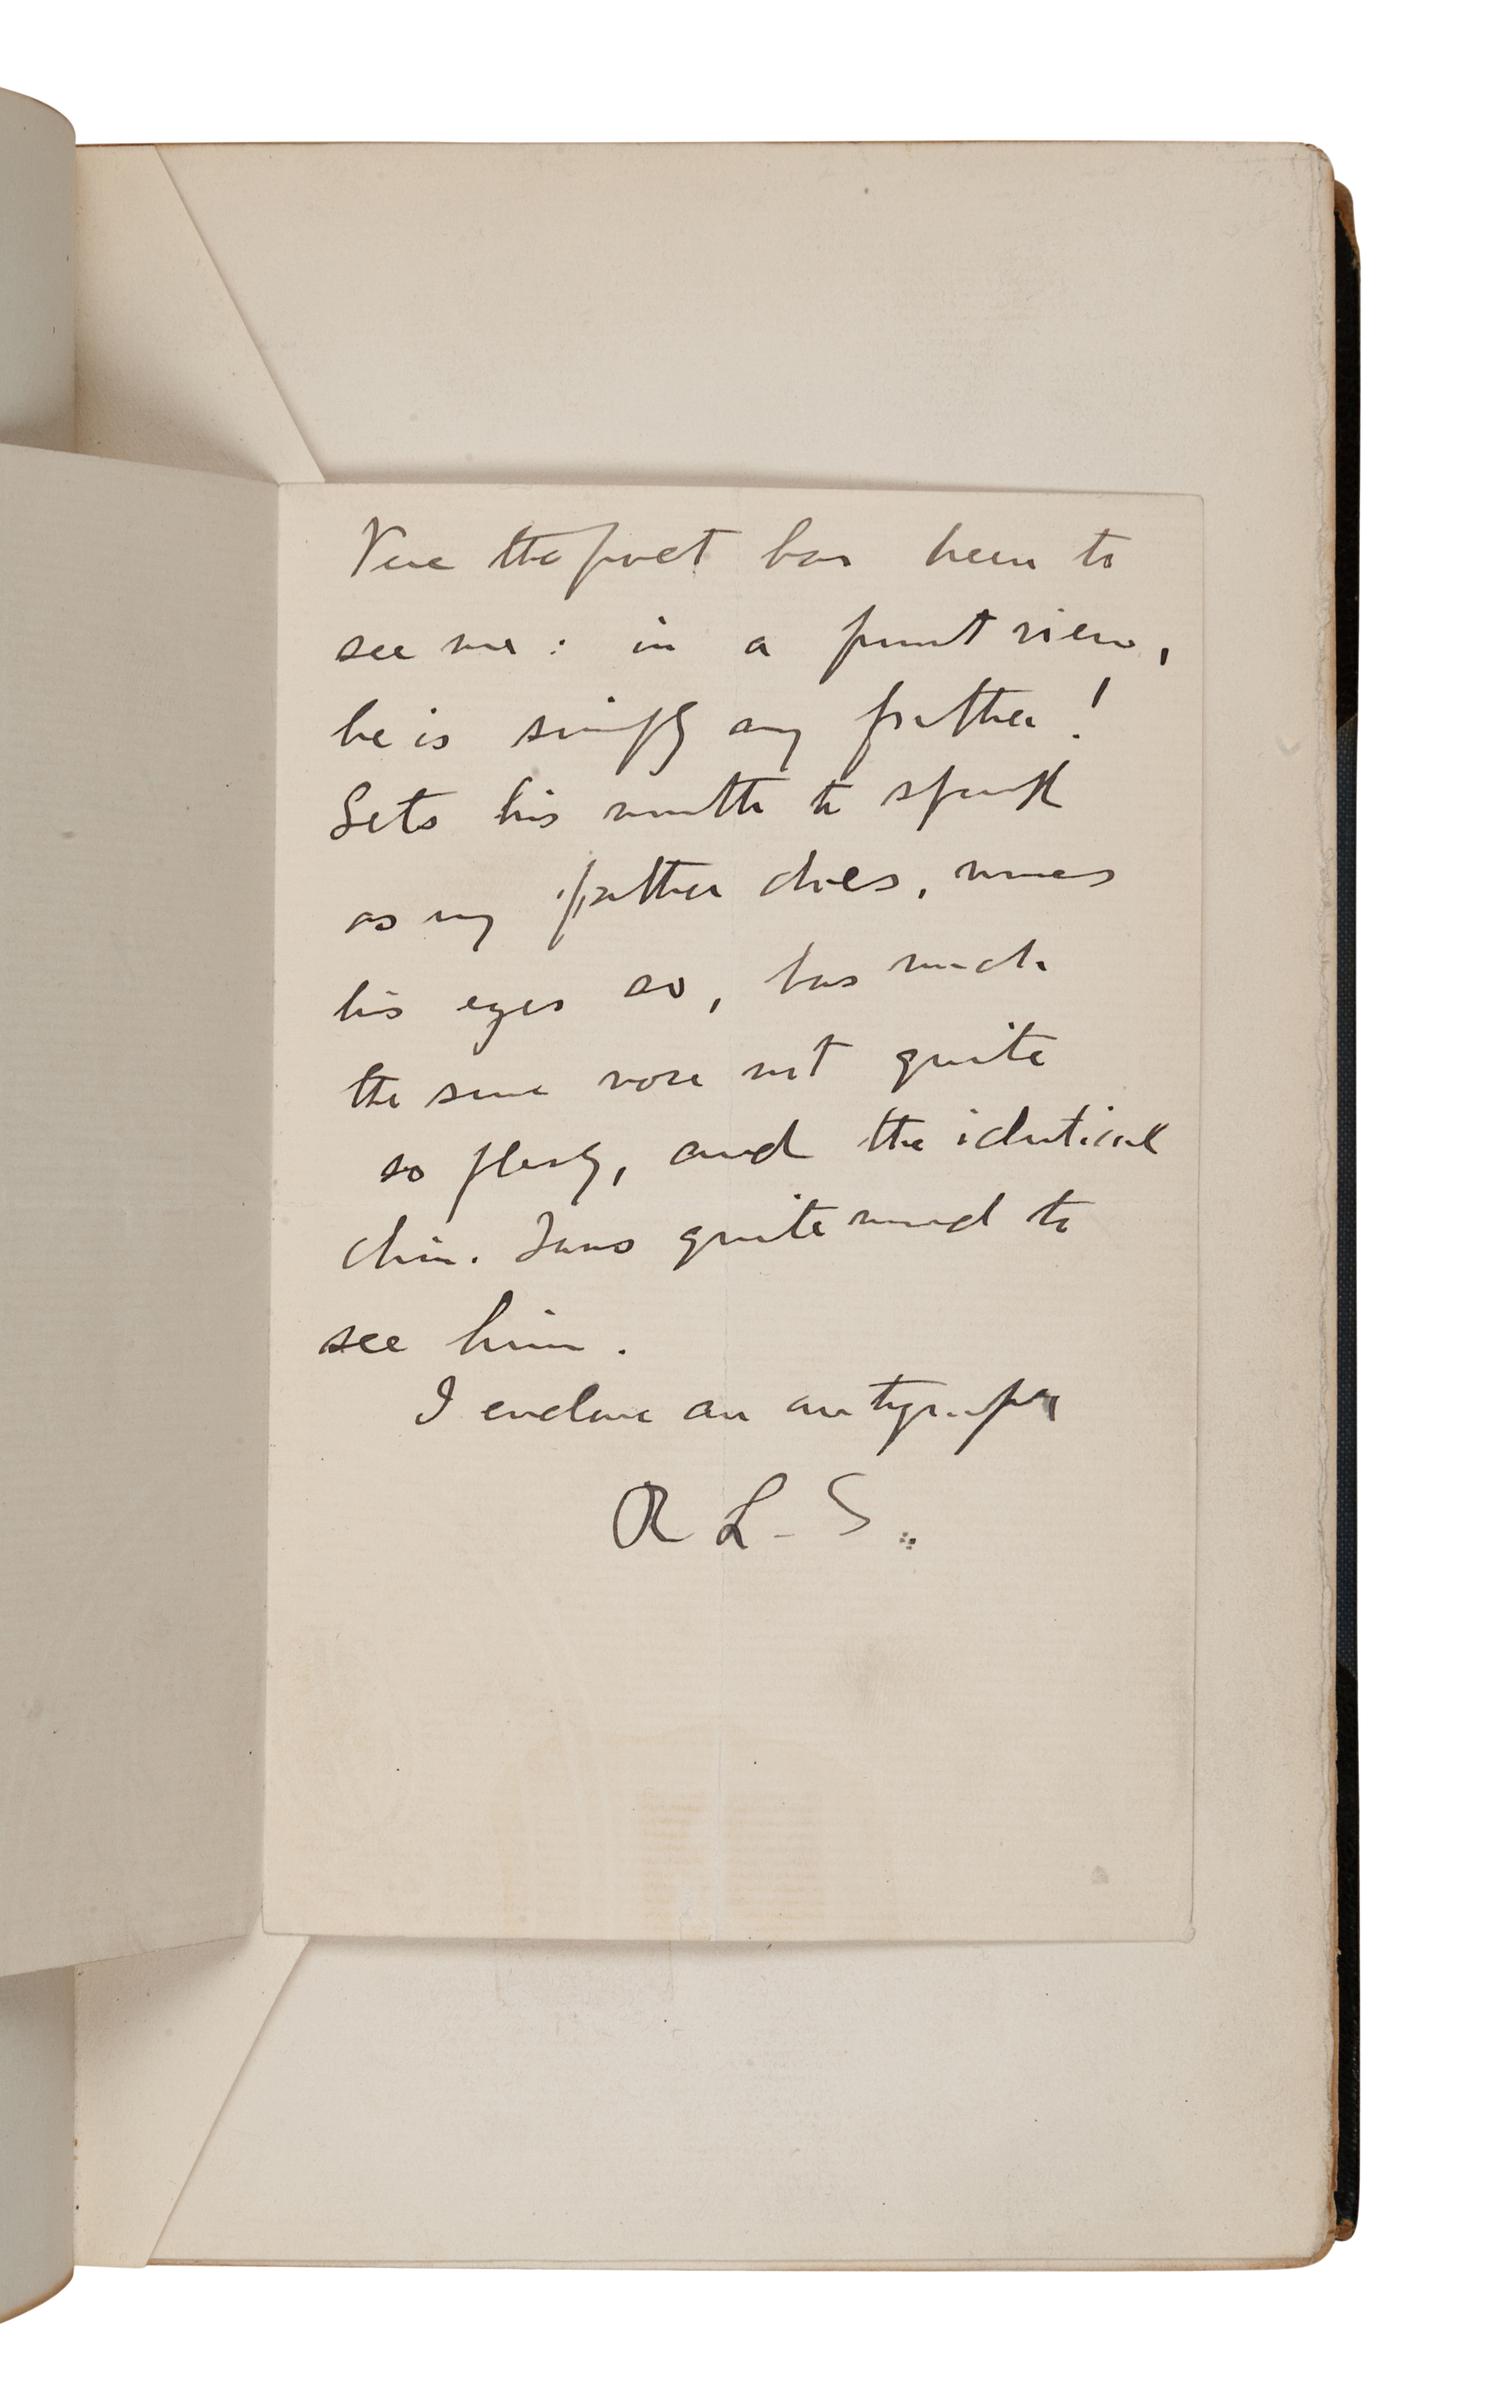 Vere the poet has been to
see me: in a point view,
he is simply my father!
Sets his mouth to speak
as my father does, moves
his eyes so, has much
the same nose not quite
so fleshy, and the identical
chin. I was quite moved to
see him.
I enclose an autograph
R L. S.